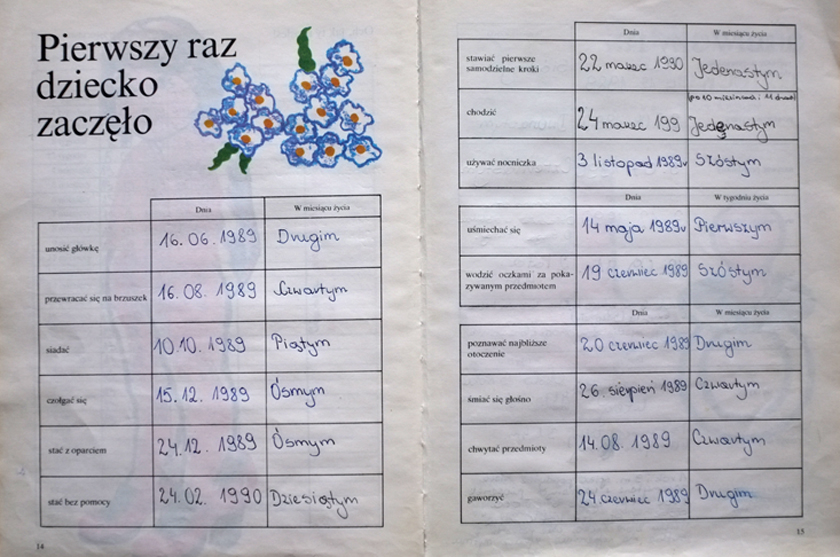 Pierwszy raz
dziecko
zaczęło
Dnia W miesiącu życia
unosić główkę 16.06.1989 Drugim
przewracać się na brzuszek 16.08.1989 Czwartym
siadać 10.10.1989 Piątym
czołgać się 15.12.1989 Ósmym
stać z oparciem 24.12.1989 Ósmym
stać bez pomocy 24.02.1990 Dziesiątym
14
Dnia W miesiącu życia
stawiać pierwsze
samodzielne kroki 22 marzec 1990 Jedenastym
(po 10 miesiącach i 11 dniach)
chodzić 24 marzec 199 Jedenastym
używać nocniczka 3 listopad 1989r Szóstym
Dnia W tygodniu życia
uśmiechać się 14 maja 1989r Pierwszym
wodzić oczkami za poka-
zywanym przedmiotem 19 czerwiec 1989 Szóstym
Dnia W miesiącu życia
poznawać najbliższe
otoczenie 20 czerwiec 1989 Drugim
śmiać się głośno 26 sierpień 1989 Czwartym
chwytać przedmioty 14.08.1989 Czwartym
gaworzyć 24 czerwiec 1989 Drugim
15